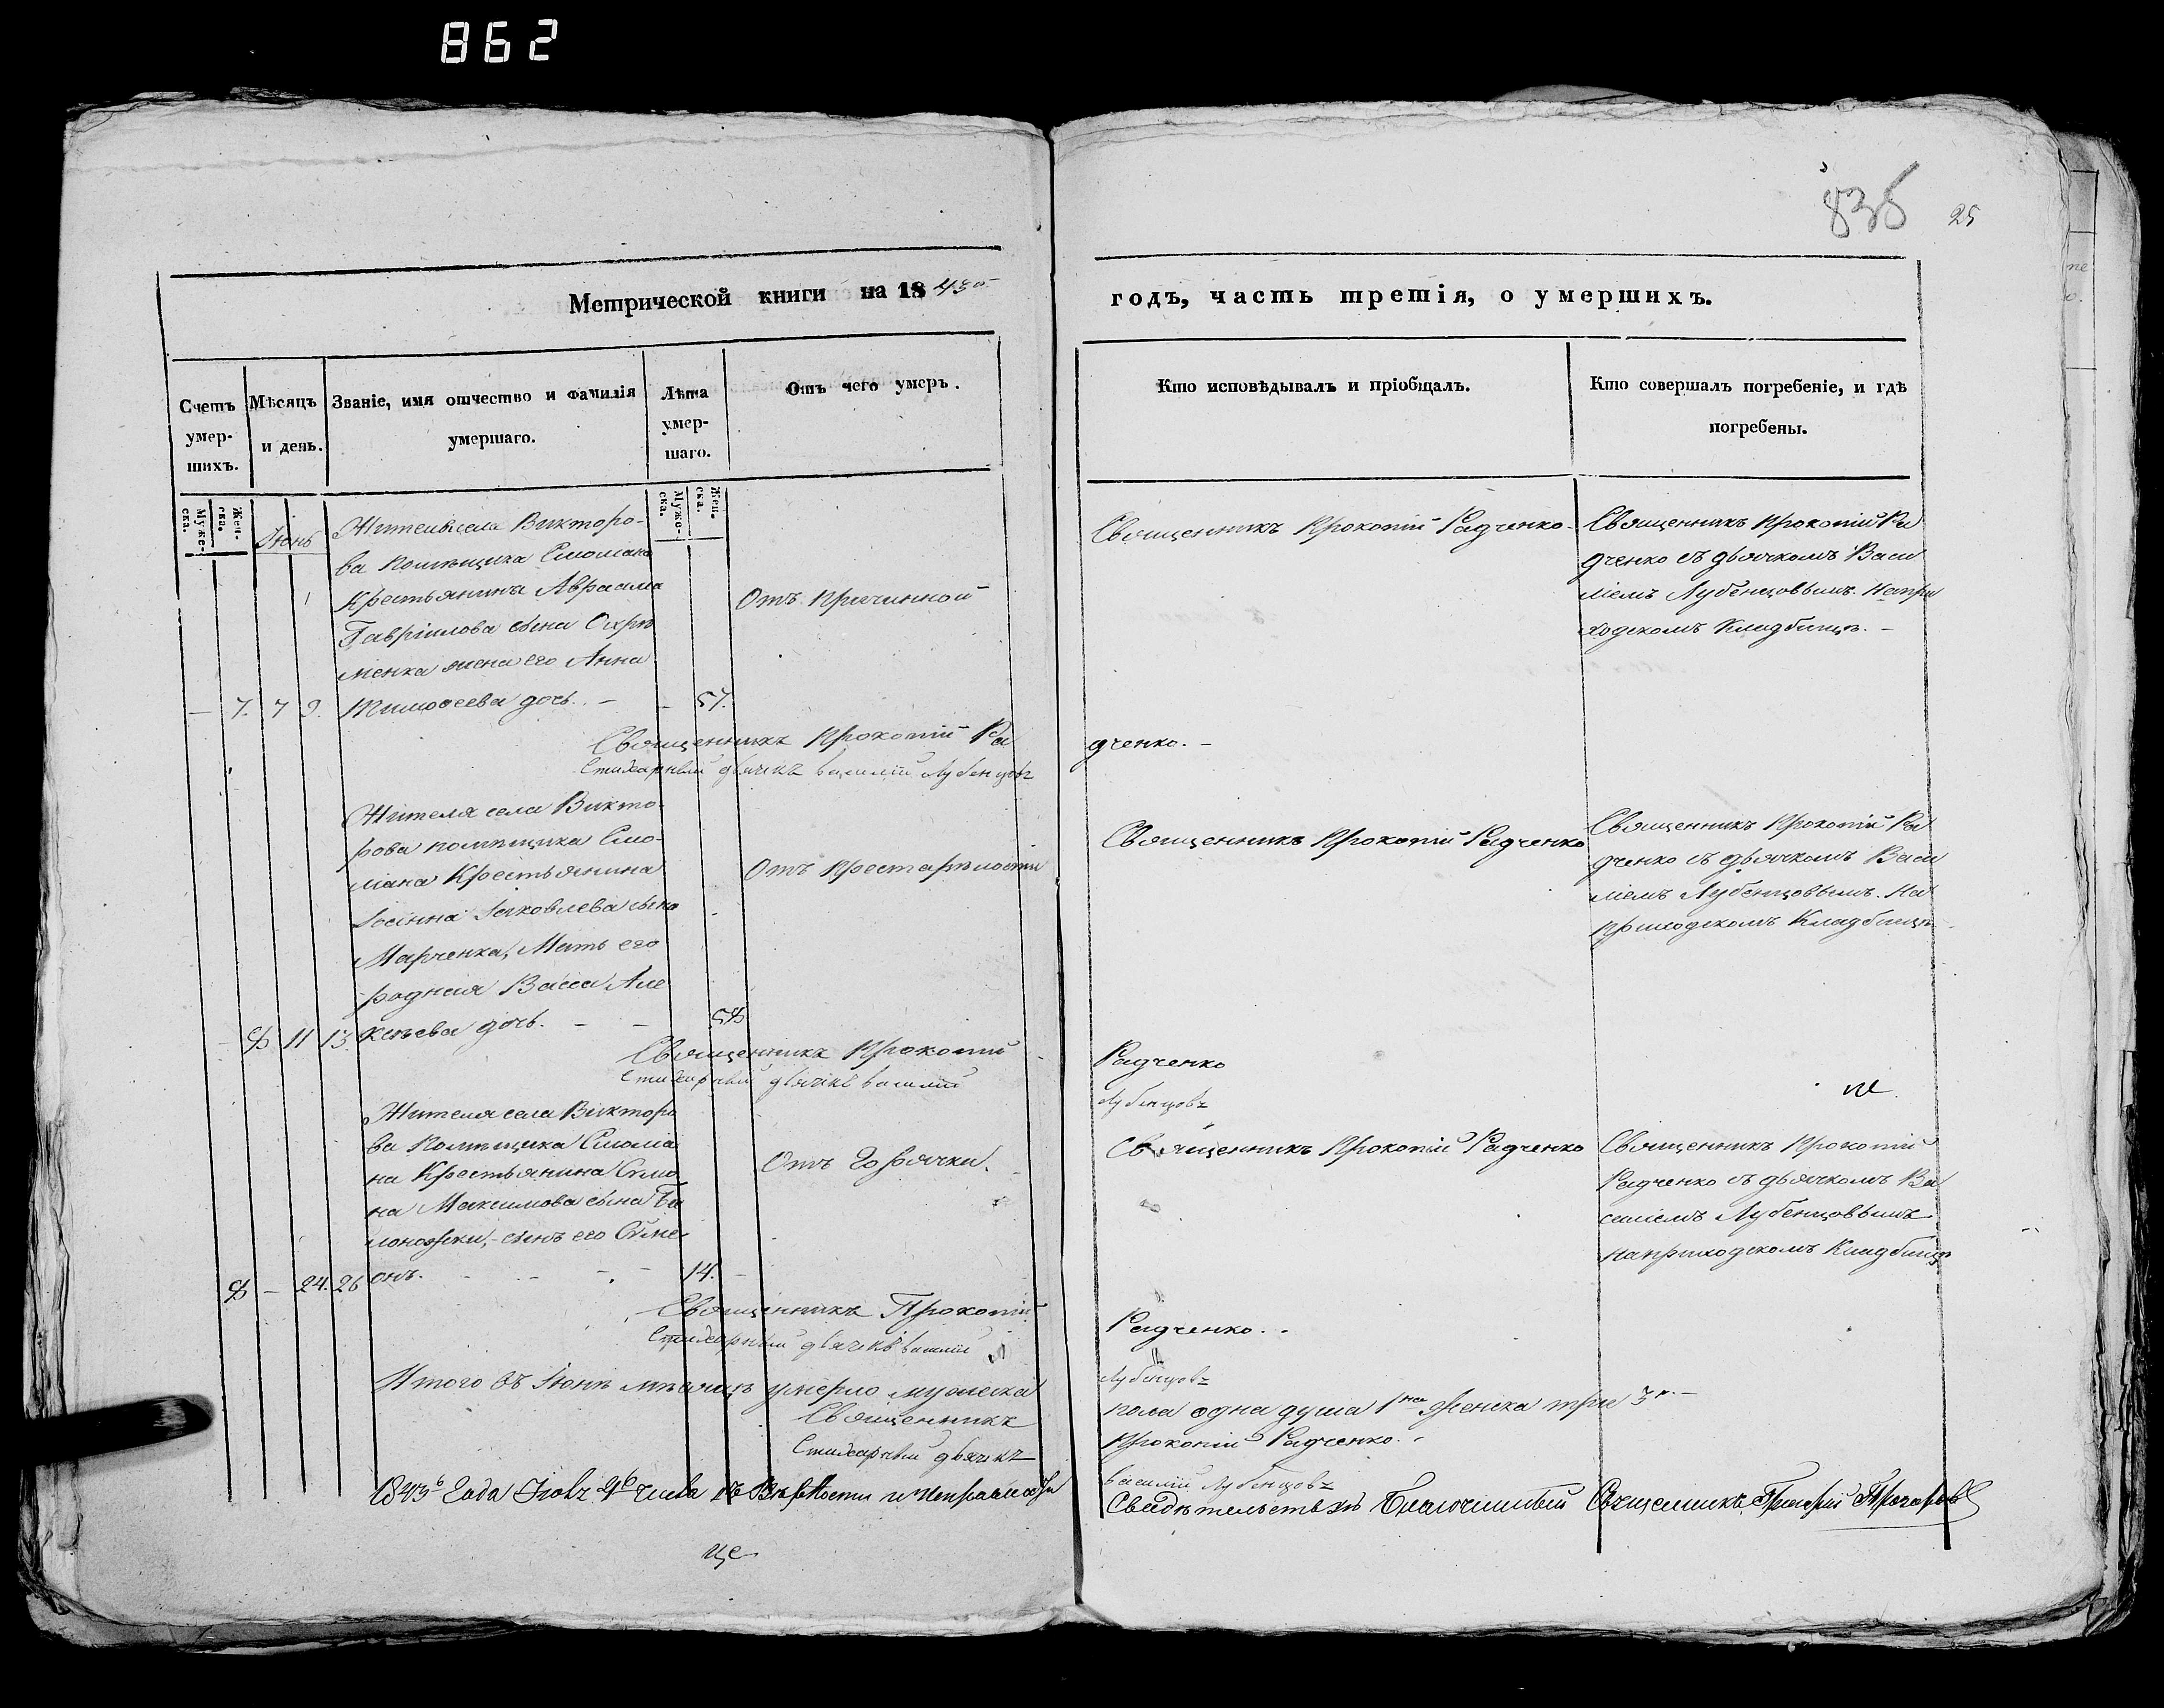 862
835 25
Метрической книги на 1843
годъ, часть третія, о умершихъ.
Счетъ умер-шихъ.
Мѣсяцъ и день.
Званіе, имя отчество и фамилія умершаго.
Лѣта умер-шаго.
Отъ чего умеръ.
Кто исповѣдывалъ и пріобщалъ.
Кто совершалъ погребеніе, и гдѣ погребены.
Муже-ска.
Жен-ска.
Мужс-ска.
Жен-ска.
Іюнь
Викторо-
ва помѣщика Смоліана
Крестьянина Авраама
Гавріилова сына
менка жена его Анна
Тимоѳеева дочь. –
– 7. 7 9.
– 57.
Отъ Причинной
Священникъ Прокопій Радченко
Священникъ Прокопій Ра
дченко съ дьячкомъ Васи
ліемъ Лубенцовымъ. На при
ходскомъ Кладбищѣ. –
Священникъ Прокопій Ра
дченко. –
Стихарный дьячкъ василій Лубенцовъ
Жителя села Викто-
рова помѣщика Смо-
ліана Крестьянина
Іоанна Іаковлева сына
Марченка, Мать его
родная Васса Але
ксѣева дочь. – –
8 11 13.
58
Отъ Престарѣлости
Священникъ Прокопій Радченко
Священникъ Прокопій Ра
дченко съ дьячкомъ Васи
ліемъ Лубенцовымъ. На
приходскомъ Кладбищѣ
Священникъ Прокопій
Радченко
Стихарный дьячкъ василій
Лубенцовъ
Жителя села Викторо
ва Помѣщика Смоліа
на Крестьянина Симо
на Максимова сына
сынъ его Симе
онъ.
8 – 24. 26
14. –
Отъ Горячки.
Священникъ Прокопій Радченко
Священникъ Прокопій
Радченко съ дьячкомъ Ва
силіемъ Лубенцовымъ
на приходскомъ Кладбищѣ
Священникъ Прокопій
Радченко. .
Стихарный дьячкъ василій
Лубенцовъ
Итого въ Іюнѣ мѣсяцѣ умерло мужеска
пола одна душа 1 женска три 3
Священникъ
Прокопій Радченко.
Стихарный дьячкъ
василій Лубенцовъ
1843 Года числа
Свидѣтельствъ Благочинный Священникъ